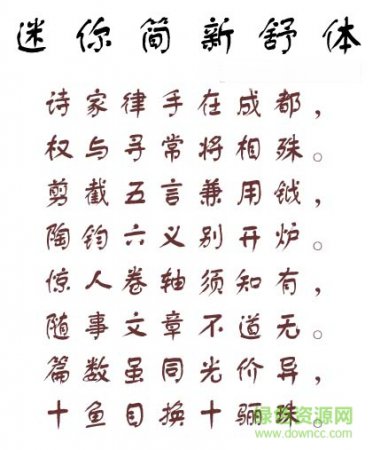 迷你简新舒体
诗家律手在成都，
权与寻常将相殊。
剪截五言兼用钺，
陶钧六义别开炉。
惊人卷轴须知有，
随事文章不道无。
篇数虽同光价异，
十鱼目换十骊珠。
绿色资源网
www.downcc.com